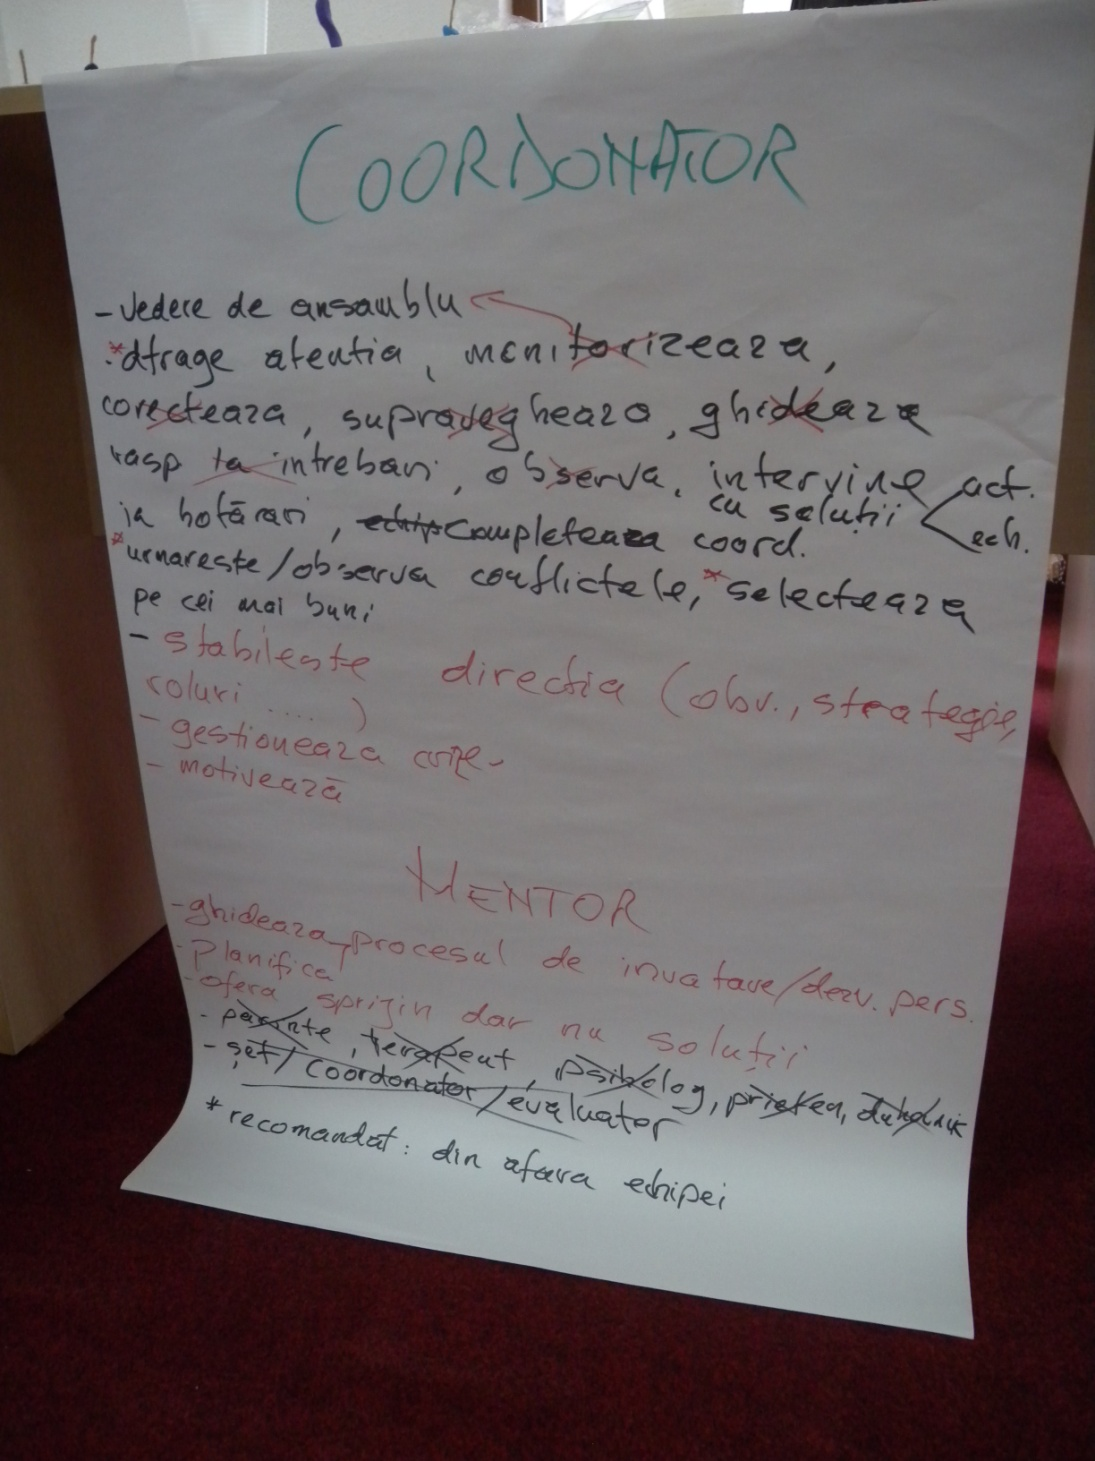 COORDONATOR
- vedere de ansamblu
*atrage atentia, monitorizeaza,
corecteaza, supravegheaza, ghideaza
rasp la intrebari, observa, intervine act.
cu soluții ech.
ia hotărari, echipa completeaza coord.
*urmareste/observa conflictele, *selecteaza
pe cei mai buni
- stabileste directia (obv., strategie,
roluri ....)
- gestioneaza crize
- motivează
MENTOR
- ghideaza procesul de invatare/dezv. pers.
- planifica
- ofera sprijin dar nu soluții
- parinte, terapeut, psiholog, prieten, duhovnik
- șef/coordonator/evaluator
* recomandat: din afara echipei